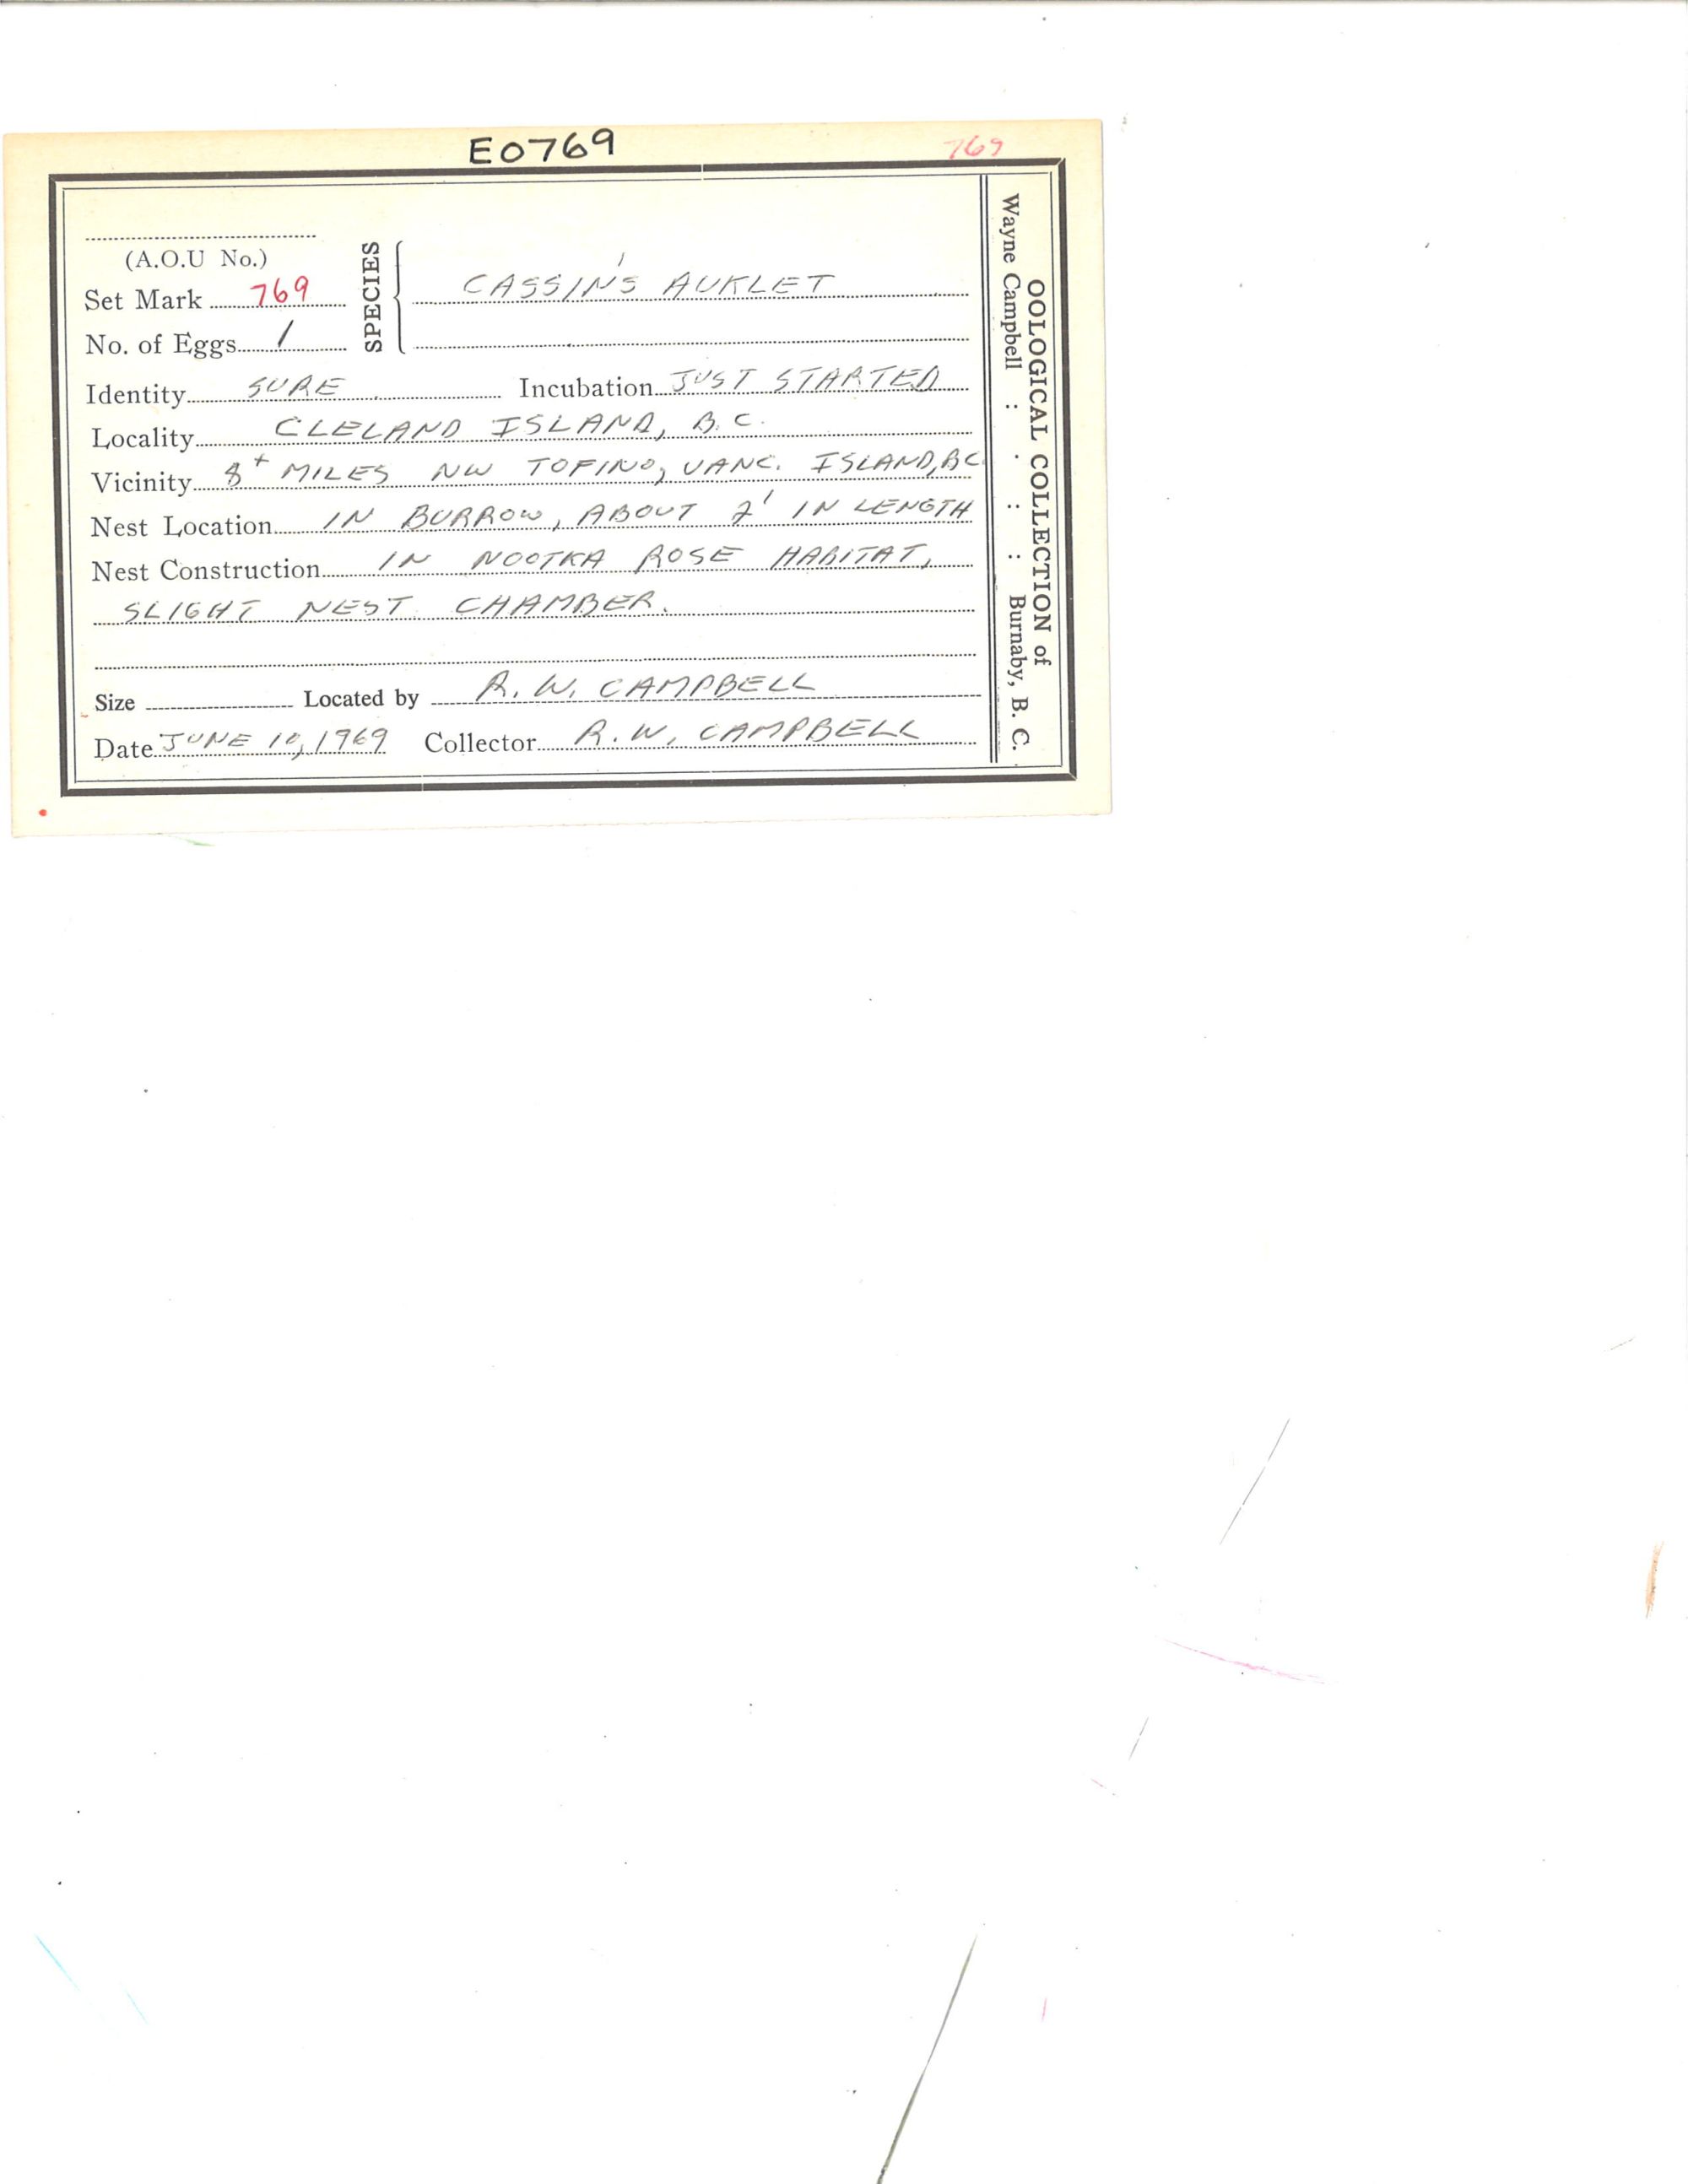 E0769
769
(A.O.U No.)
Set Mark 769
No. of Eggs 1
SPECIES
CASSIN'S AUKLET
Identity SURE Incubation JUST STARTED
Locality CLELAND ISLAND, B.C.
Vicinity 8+ MILES NW TOFINO, VANC. ISLAND, BC
Nest Location IN BURROW, ABOUT 2' IN LENGTH
Nest Construction IN NOOTKA ROSE HABITAT,
SLIGHT NEST CHAMBER.
Size Located by R. W. CAMPBELL
Date JUNE 10, 1969 Collector R. W. CAMPBELL
OOLOGICAL COLLECTION of
Wayne Campbell : . : : Burnaby, B. C.